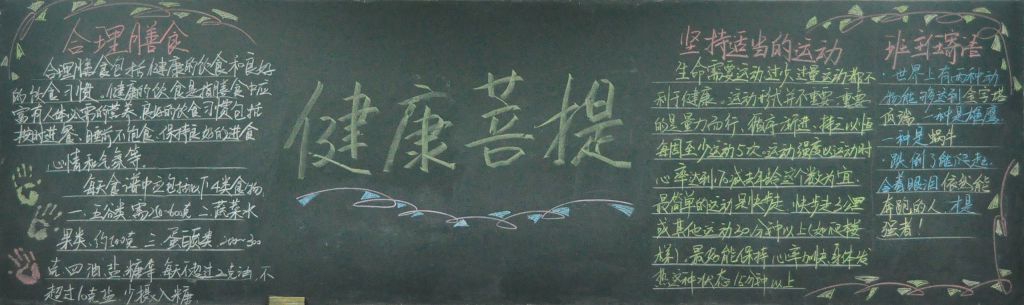 合理膳食
合理膳食包括健康的饮食和良好
的饮食习惯。健康的饮食是指膳食中应
富有人体必需的营养。良好的饮食习惯包括
按时进餐、睡前不间食、保持良好的进食
心情和气氛等。
每天食谱中应包括以下4类食物
一.五谷类 需 二.蔬菜水
果类.约 克 三.蛋白质类
克 四.油盐糖等 每天不超过2克油.不
超过6克盐 少摄入糖.
健康菩提
坚持适当的运动
生命需要运动过少过量运动都不
利于健康。运动形式并不重要.重要
的是量力而行、循序渐进、持之以恒
每周至少运动5次.运动强度以运动时
心率达到 减去年龄这个数为宜.
最简单的运动是快步走.快步走3公里
或其他运动30分钟以上(如爬楼
梯).最好能保持心率加快、身体发
热这种状态15分钟以上
班主任寄语
·世界上有两种动
物能够达到金字塔
顶端.一种是雄鹰.
一种是蜗牛
·跌倒了能爬起.
含着眼泪依然能
奔跑的人.才是
强者!